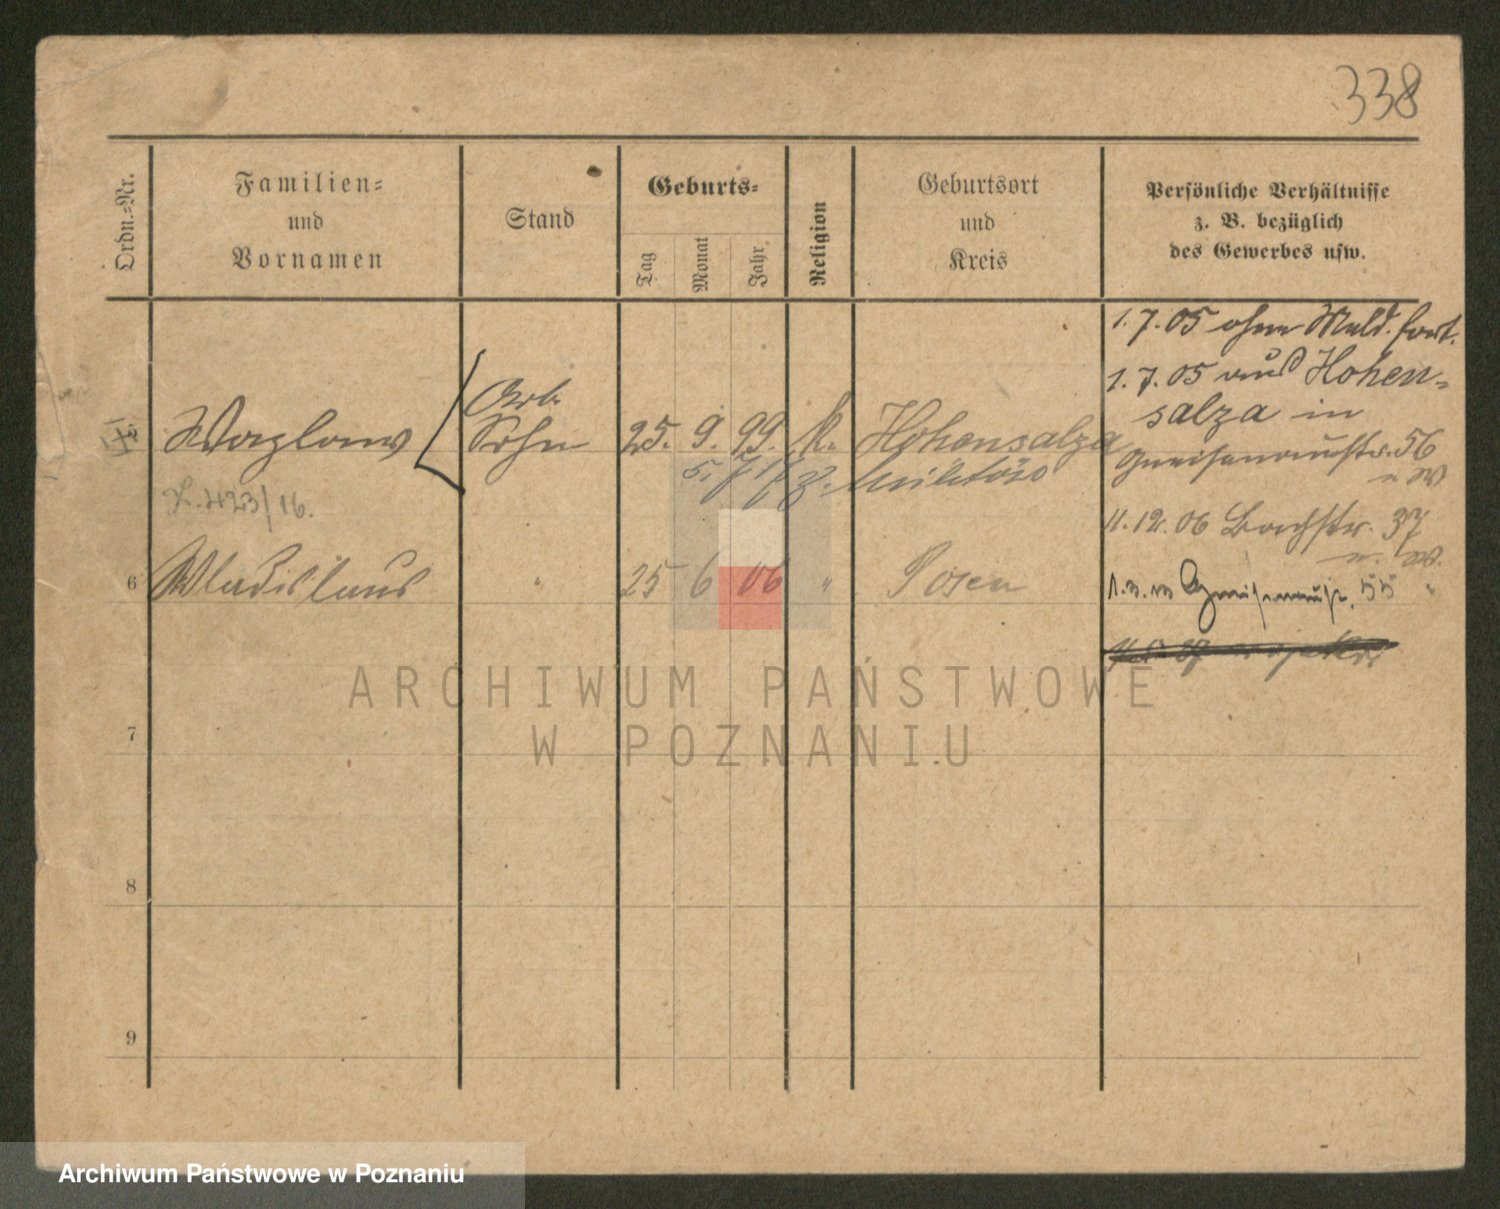 338
Ordn.-Nr.
Familien-
und
Vornamen
Stand
Geburts-
Tag
Monat
Jahr
Religion
Geburtsort
und
Kreis
Persönliche Verhältnisse
z. B. bezüglich
des Gewerbes usw.
1. 7. 05 ohne Meld. fort.
1. 7. 05 aus Hohen-
salza in
Gneisenaustr. 56
5 Wazlaw Arb. Sohn 25. 9. 99. k. Hohensalza
5. 7 17 z.
K. 423/16.
11. 12. 06 Bachstr. 37
6 Wladislaus " 25 6 06 " Posen
Gneisenaustr. 55 "
7
8
9
ARCHIWUM PAŃSTWOWE
W POZNANIU
Archiwum Państwowe w Poznaniu